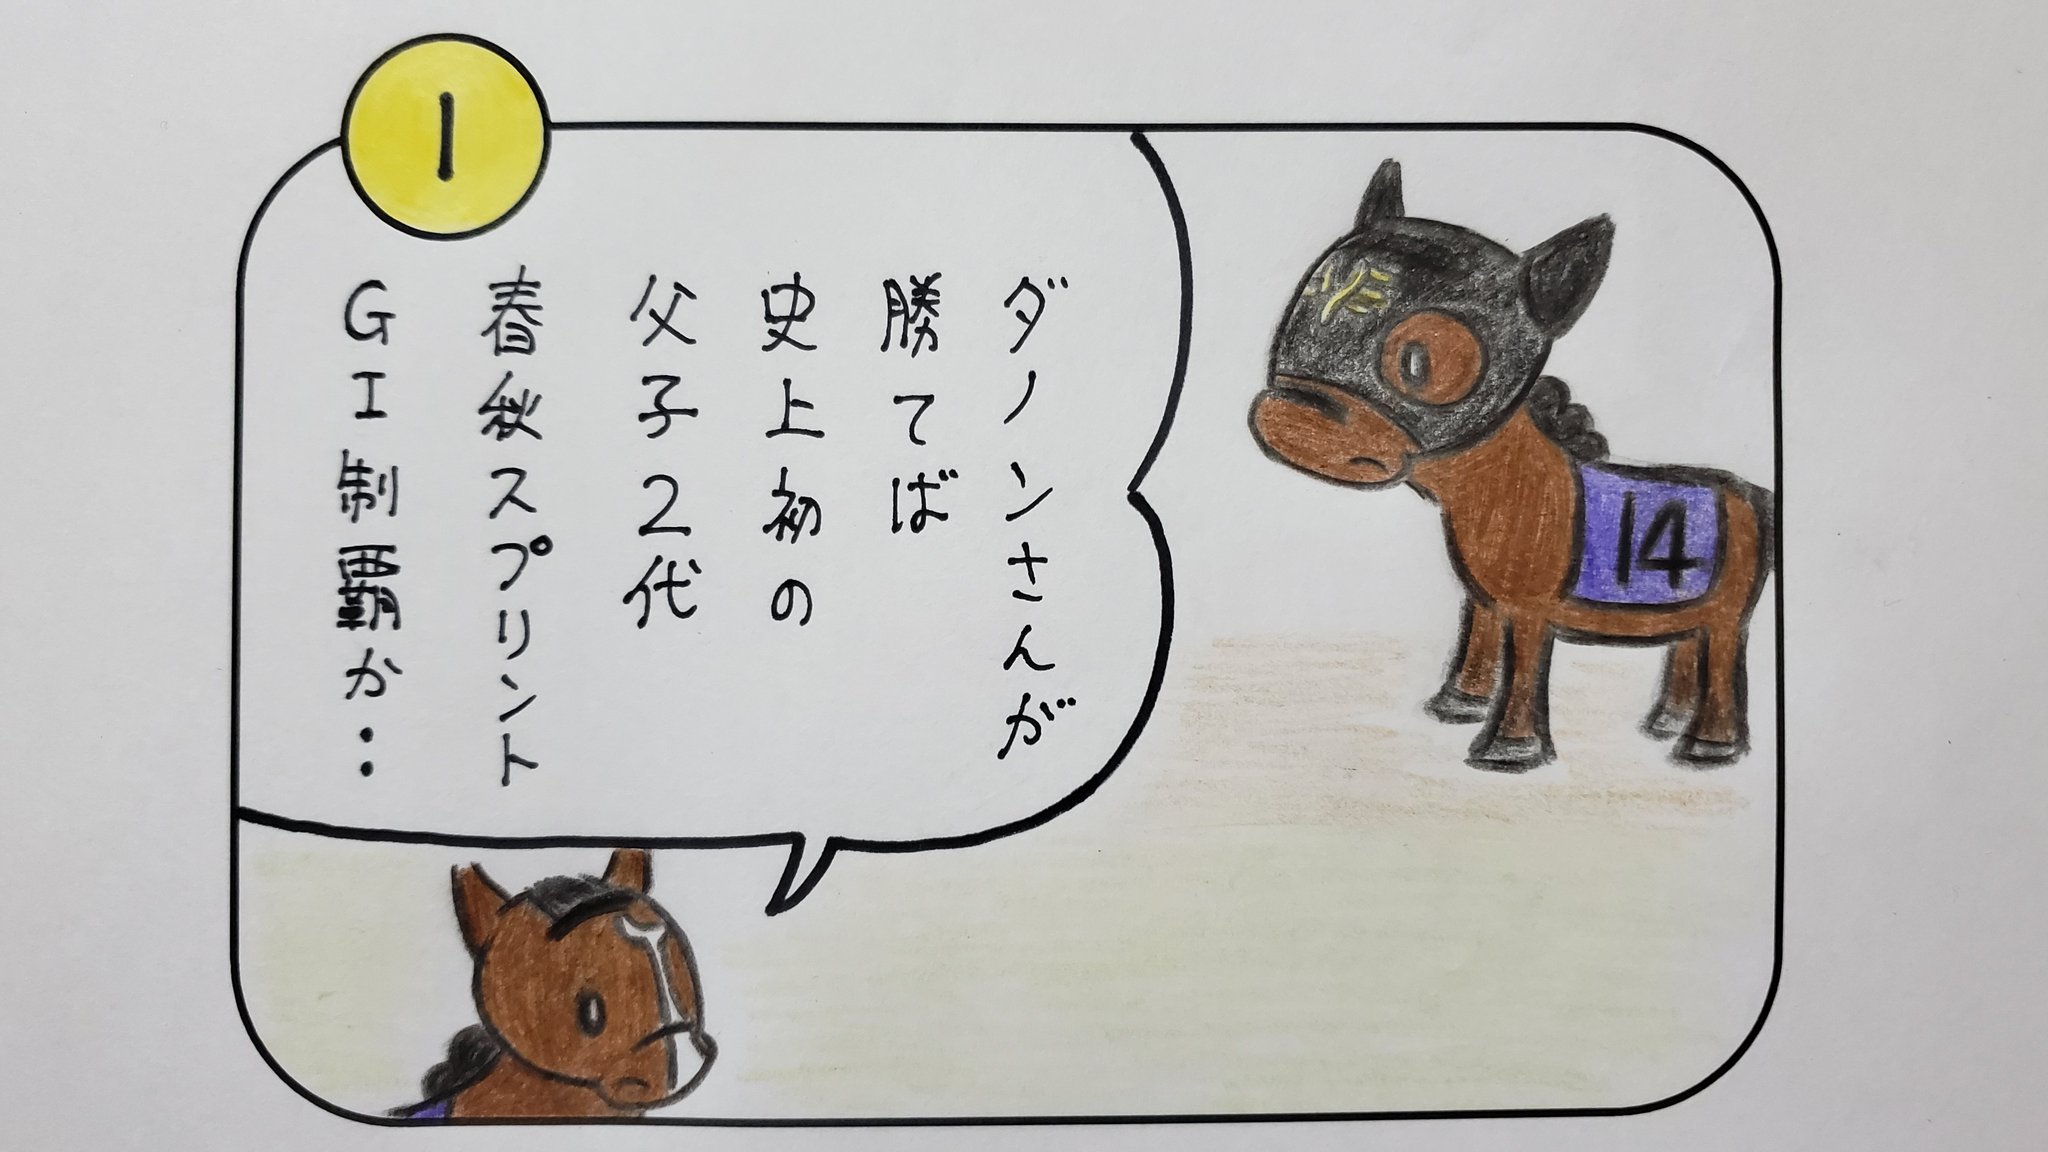 1
ダノンさんが
勝てば
史上初の
父子2代
春秋スプリント
GI制覇か・・
14